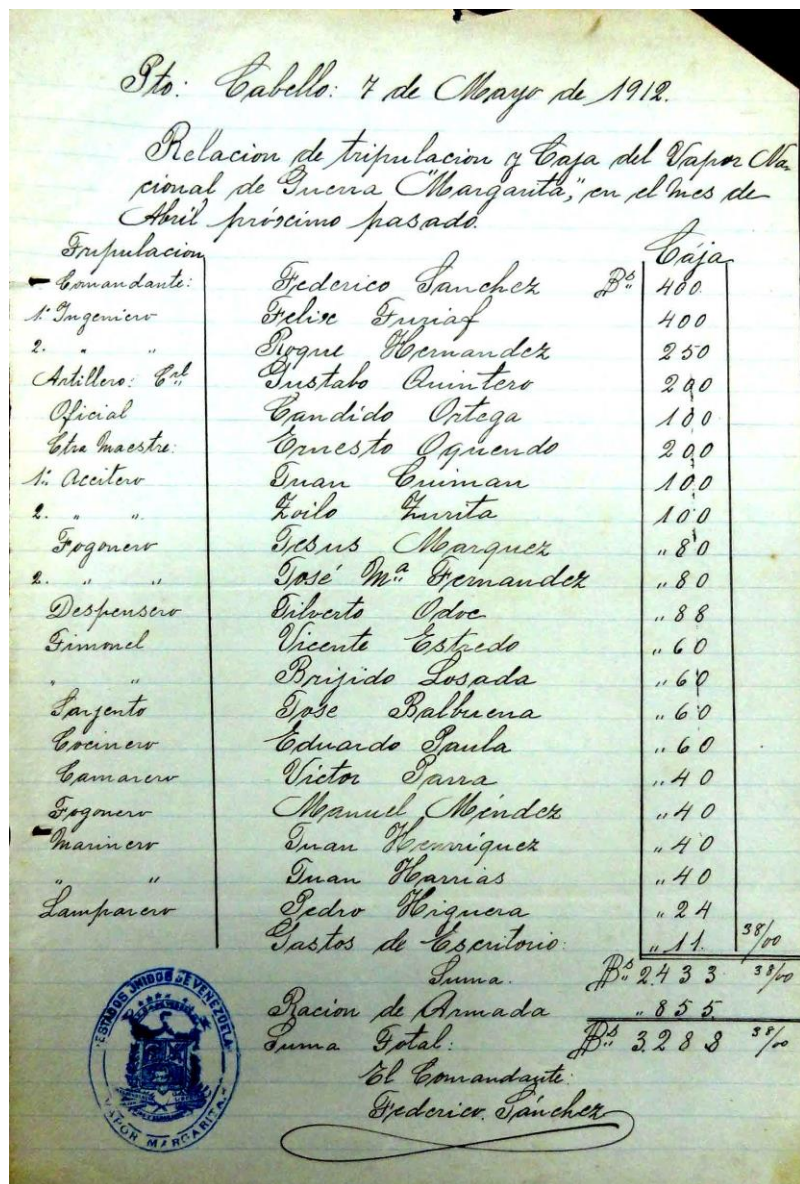 Pto: Cabello: 7 de Mayo de 1912.
Relacion de tripulacion y Caja del Vapor Na-
cional de Guerra "Margarita," en el mes de
Abril próximo pasado.
Tripulacion Caja
Comandante: Federico Sanchez Bs 400.
1º Ingeniero Felix 400
2. " " Roque Hernandez 250
Artillero: Cnl Gustabo Quintero 200
Oficial Candido Ortega 100
Ctra Maestre: Ernesto Oquendo 200
1º Aceitero Juan Cuiman 100
2. " " Zoilo Zurita 100
Fogonero Jesus Marquez " 80
2. " " José Mª Fernandez " 80
Despensero Jilverto Odoc " 88
Timonel Vicente Estredo " 60
" " Brijido Losada " 60
Sarjento Jose Balbuena " 60
Cocinero Eduardo Paula " 60
Camarero Victor Parra " 40
Fogonero Manuel Méndez " 40
Marinero Juan Henríquez " 40
" " Juan Harrias " 40
Lamparero Pedro Higuera " 24
Gastos de Escritorio: " 11. 38/00
Suma. Bs 2.433 38/00
Racion de Armada " 855.
Suma Total: Bs 3.288 38/00
El Comandante:
Federico. Sánchez
ESTADOS UNIDOS DE VENEZUELA
VAPOR MARGARITA